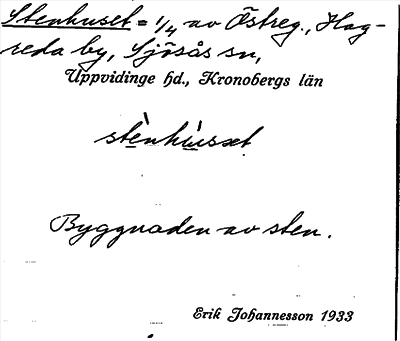 Stenhuset = 1/4 av Östreg., Hag-
reda by, Sjösås sn,
Uppvidinge hd., Kronobergs län
stè̱nhṳ̀sət
Byggnaden av sten.
Erik Johannesson 1933